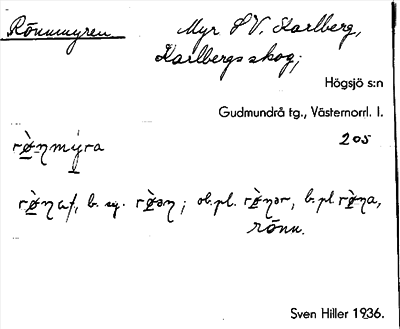 Rönnmyren Myr S V. Karlberg,
Karlbergs skog;
Högsjö s:n
Gudmundrå tg., Västernorrl. l.
205
rø̀nmýra
rø̀na f, b. sg. rø̀ən; ob. pl. rø̀nər, b. pl. rø̀na,
rönn.
Sven Hiller 1936.